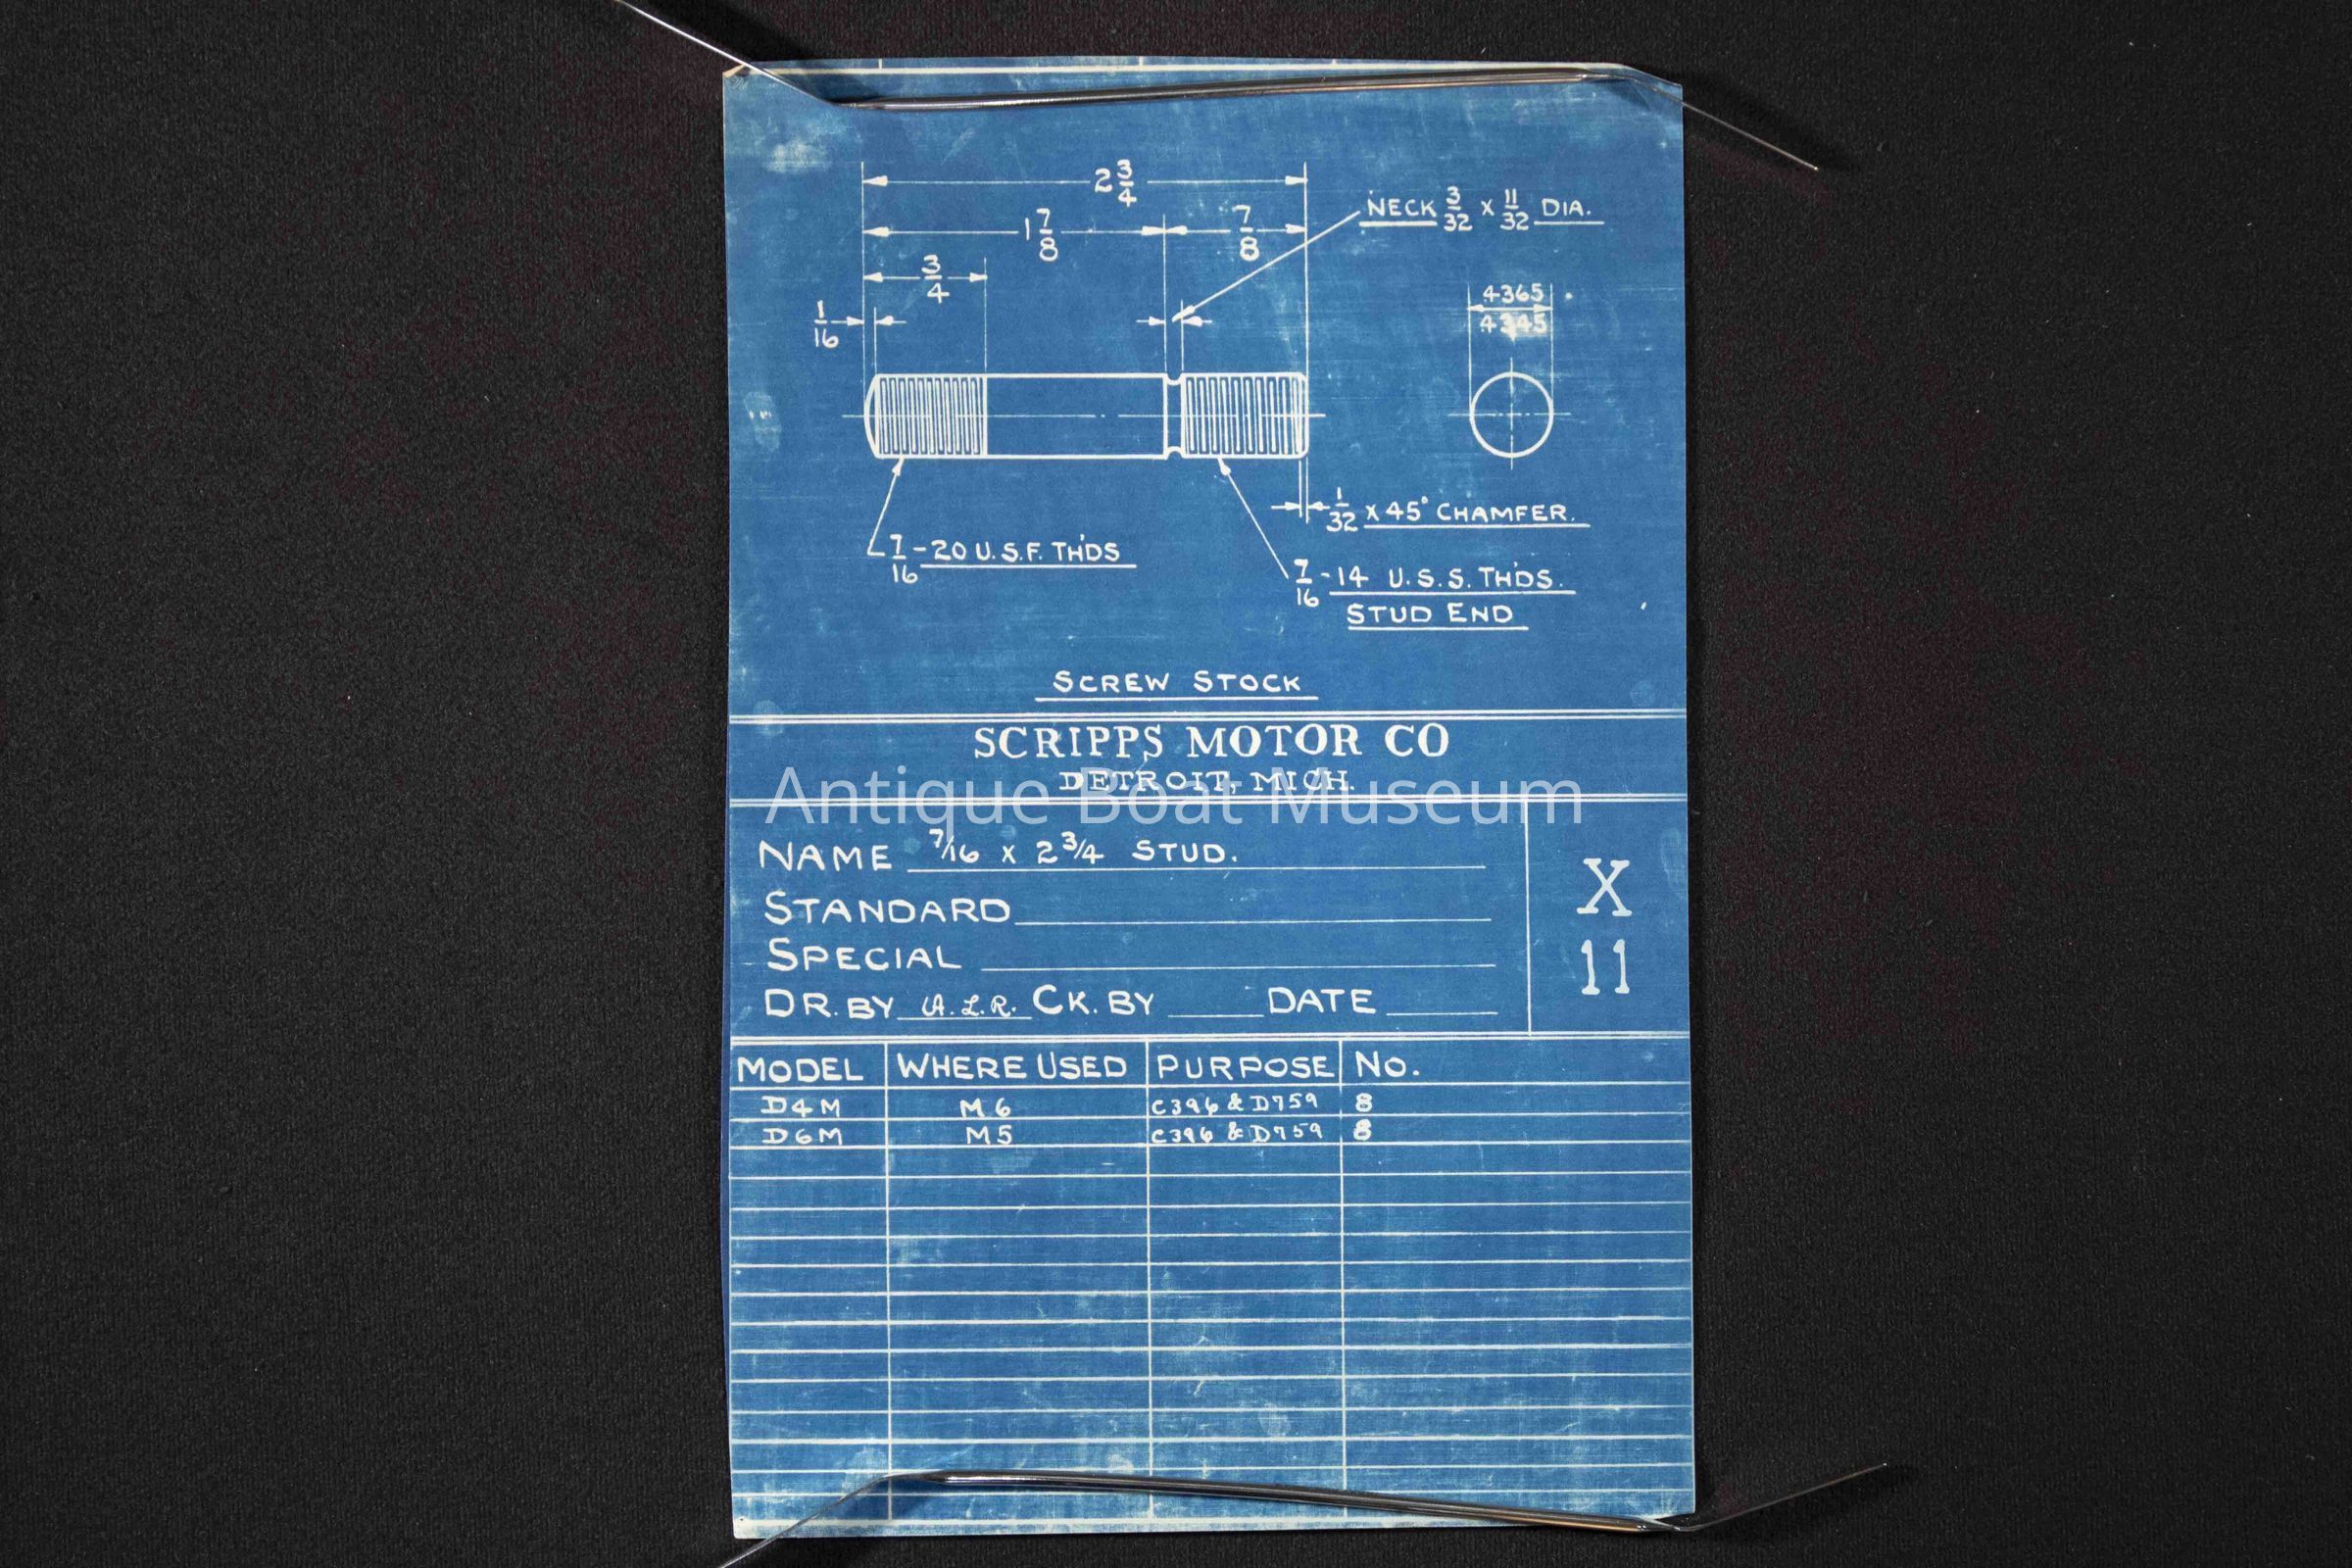 2 3/4
1 7/8
7/8
NECK 3/32 X 11/32 DIA.
3/4
1/16
.4365
.4345
1/32 X 45° CHAMFER.
7/16 - 20 U.S.F. TH'DS
7/16 - 14 U.S.S. TH'DS.
STUD END
SCREW STOCK
SCRIPPS MOTOR CO
DETROIT, MICH.
Antique Boat Museum
NAME 7/16 X 2 3/4 STUD.
STANDARD
SPECIAL
DR. BY A.L.R. CK. BY DATE
X
11
MODEL WHERE USED PURPOSE NO.
D4M M6 C396 & D759 8
D6M M5 C396 & D759 8